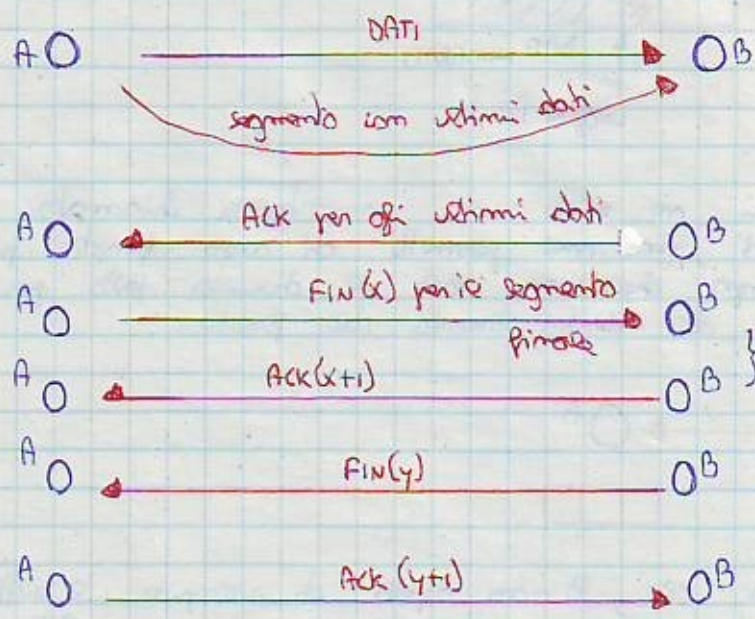 DATI
A B
segmento con ultimi dati
ACK per gli ultimi dati
A B
FIN(x) per il segmento
A B
finale
ACK(x+1)
A B }
FIN(y)
A B
ACK (y+1)
A B